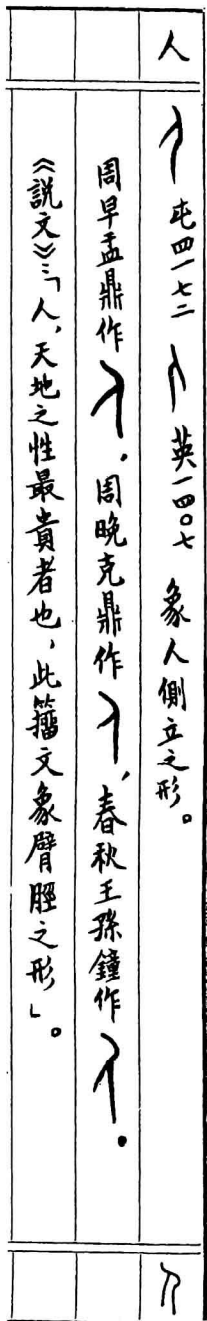 人 屯四一七二 英一四〇七 象人側立之形。
周早盂鼎作，周晚克鼎作，春秋王孫鐘作。
《説文》：「人，天地之性最貴者也，此籀文象臂脛之形」。